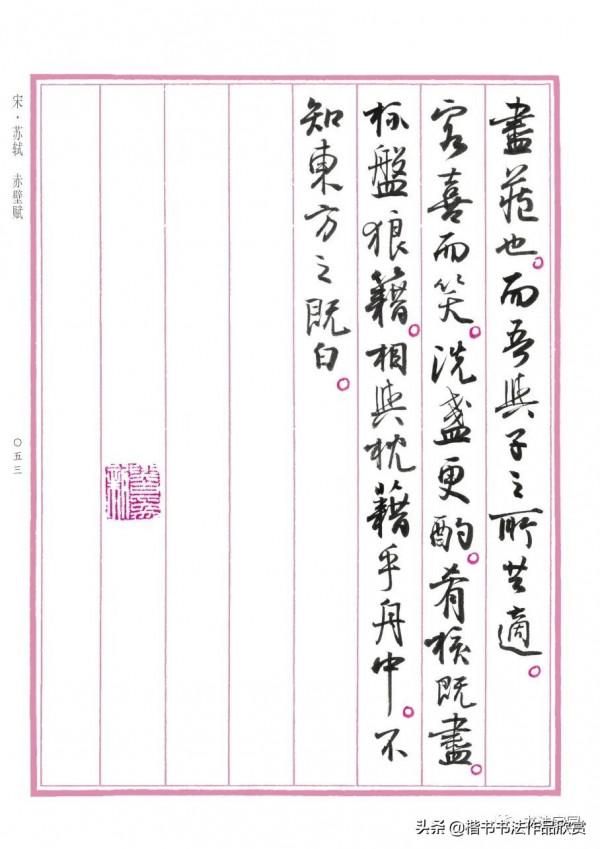 盡藏也。而吾與子之所共適。
客喜而笑。洗盞更酌。肴核既盡。
杯盤狼籍。相與枕籍乎舟中。不
知東方之既白。
宋·苏轼 赤壁赋
〇五三
头条@楷书书法作品欣赏